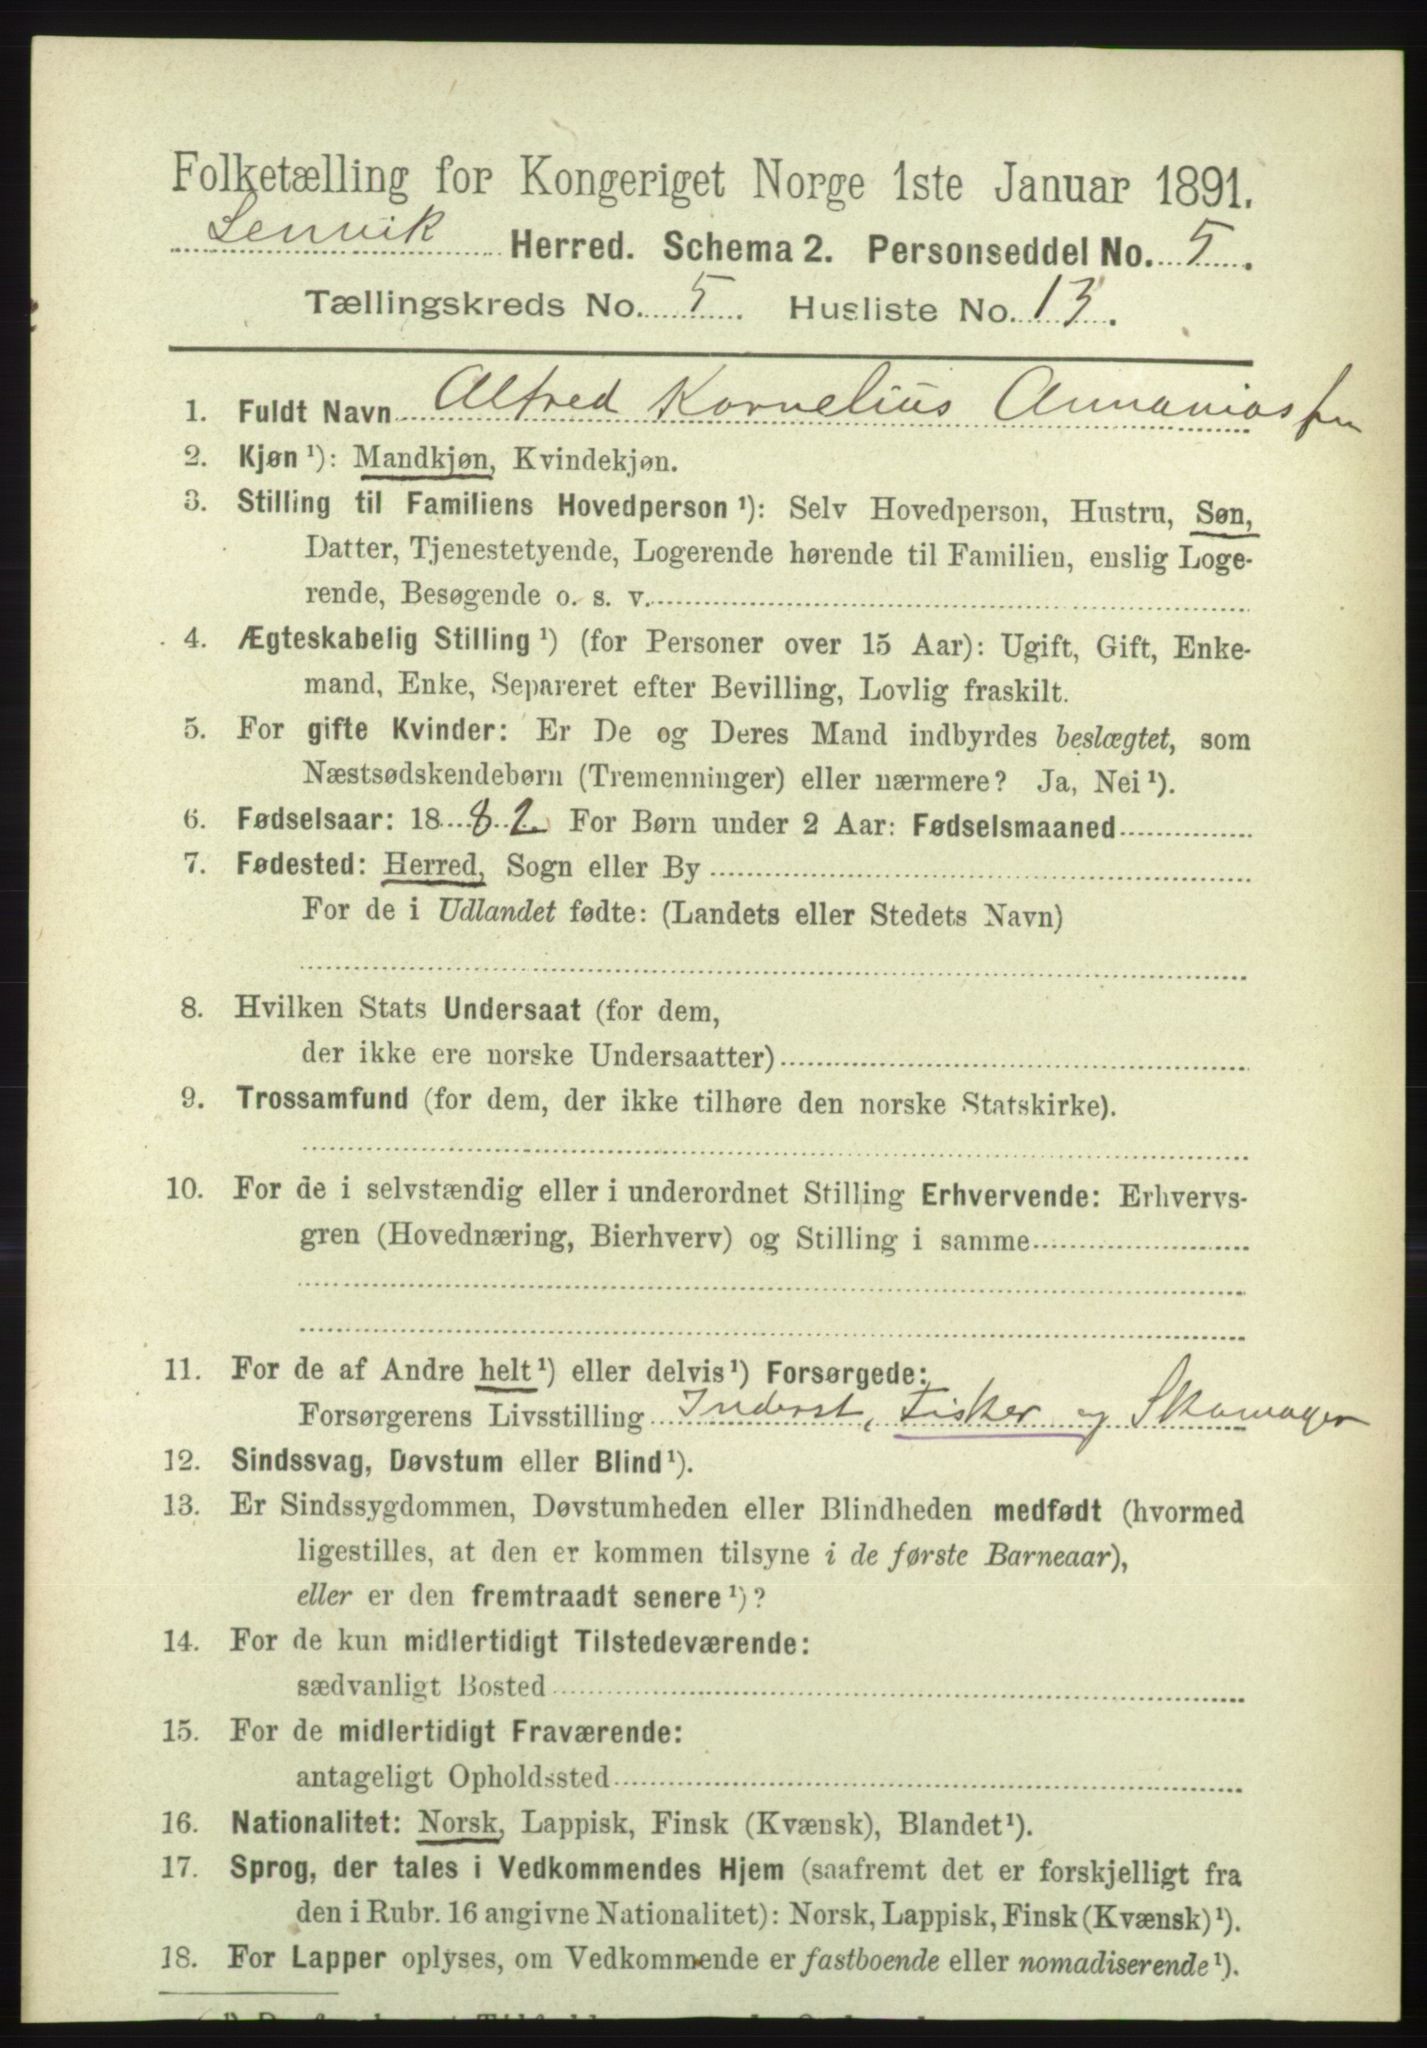 Folketælling for Kongeriget Norge 1ste Januar 1891.
Lenvik Herred. Schema 2. Personseddel No. 5.
Tællingskreds No. 5. Husliste No. 13.
1. Fuldt Navn Alfred Kornelius Annaniassen
2. Kjøn ¹): Mandkjøn, Kvindekjøn.
3. Stilling til Familiens Hovedperson ¹): Selv Hovedperson, Hustru, Søn,
Datter, Tjenestetyende, Logerende hørende til Familien, enslig Loge-
rende, Besøgende o. s. v.
4. Ægteskabelig Stilling ¹) (for Personer over 15 Aar): Ugift, Gift, Enke-
mand, Enke, Separeret efter Bevilling, Lovlig fraskilt.
5. For gifte Kvinder: Er De og Deres Mand indbyrdes beslægtet, som
Næstsødskendebørn (Tremenninger) eller nærmere? Ja, Nei ¹).
6. Fødselsaar: 1882 For Børn under 2 Aar: Fødselsmaaned
7. Fødested: Herred, Sogn eller By
For de i Udlandet fødte: (Landets eller Stedets Navn)
8. Hvilken Stats Undersaat (for dem,
der ikke ere norske Undersaatter)
9. Trossamfund (for dem, der ikke tilhøre den norske Statskirke).
10. For de i selvstændig eller i underordnet Stilling Erhvervende: Erhvervs-
gren (Hovednæring, Bierhverv) og Stilling i samme
11. For de af Andre helt ¹) eller delvis ¹) Forsørgede:
Forsørgerens Livsstilling Inderst, Fisker og Skomager
12. Sindssvag, Døvstum eller Blind ¹).
13. Er Sindssygdommen, Døvstumheden eller Blindheden medfødt (hvormed
ligestilles, at den er kommen tilsyne i de første Barneaar),
eller er den fremtraadt senere ¹)?
14. For de kun midlertidigt Tilstedeværende:
sædvanligt Bosted
15. For de midlertidigt Fraværende:
antageligt Opholdssted
16. Nationalitet: Norsk, Lappisk, Finsk (Kvænsk), Blandet ¹).
17. Sprog, der tales i Vedkommendes Hjem (saafremt det er forskjelligt fra
den i Rubr. 16 angivne Nationalitet): Norsk, Lappisk, Finsk (Kvænsk) ¹).
18. For Lapper oplyses, om Vedkommende er fastboende eller nomadiserende ¹).